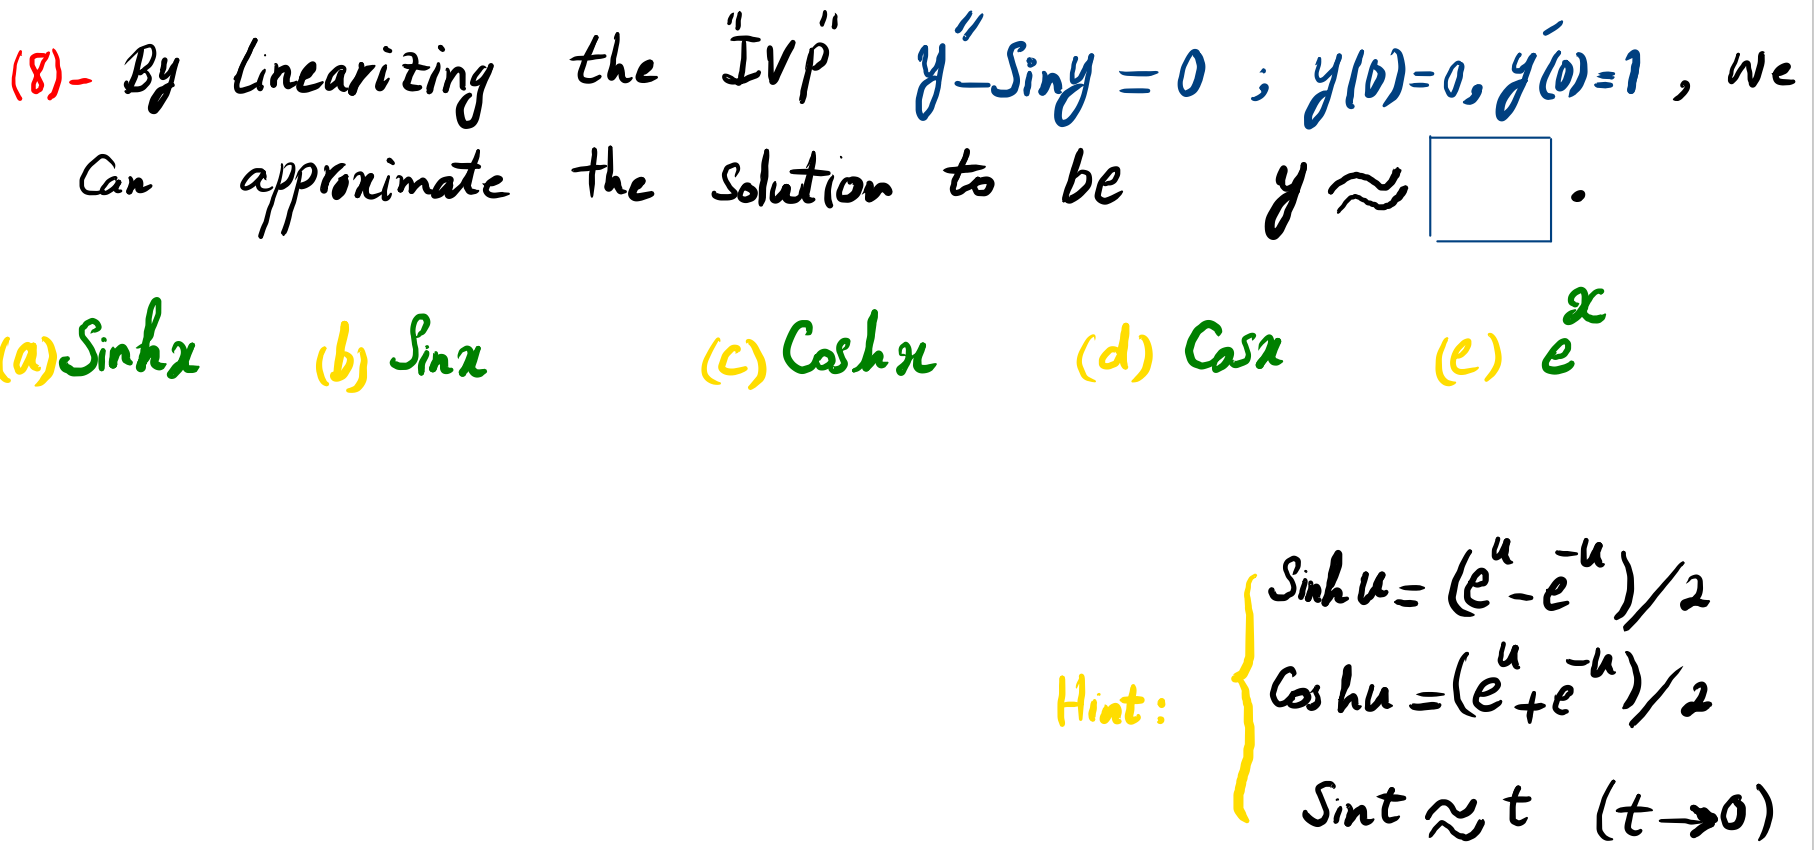 (8)- By Linearizing the "IVP" y'' - Sin y = 0 ; y(0)=0, y'(0)=1 , we
Can approximate the solution to be y ≈ □ .
(a) Sinh x (b) Sin x (c) Cosh x (d) Cos x (e) e^x
Sinh u = (e^u - e^-u)/2
Hint: Cosh u = (e^u + e^-u)/2
Sin t ≈ t (t → 0)